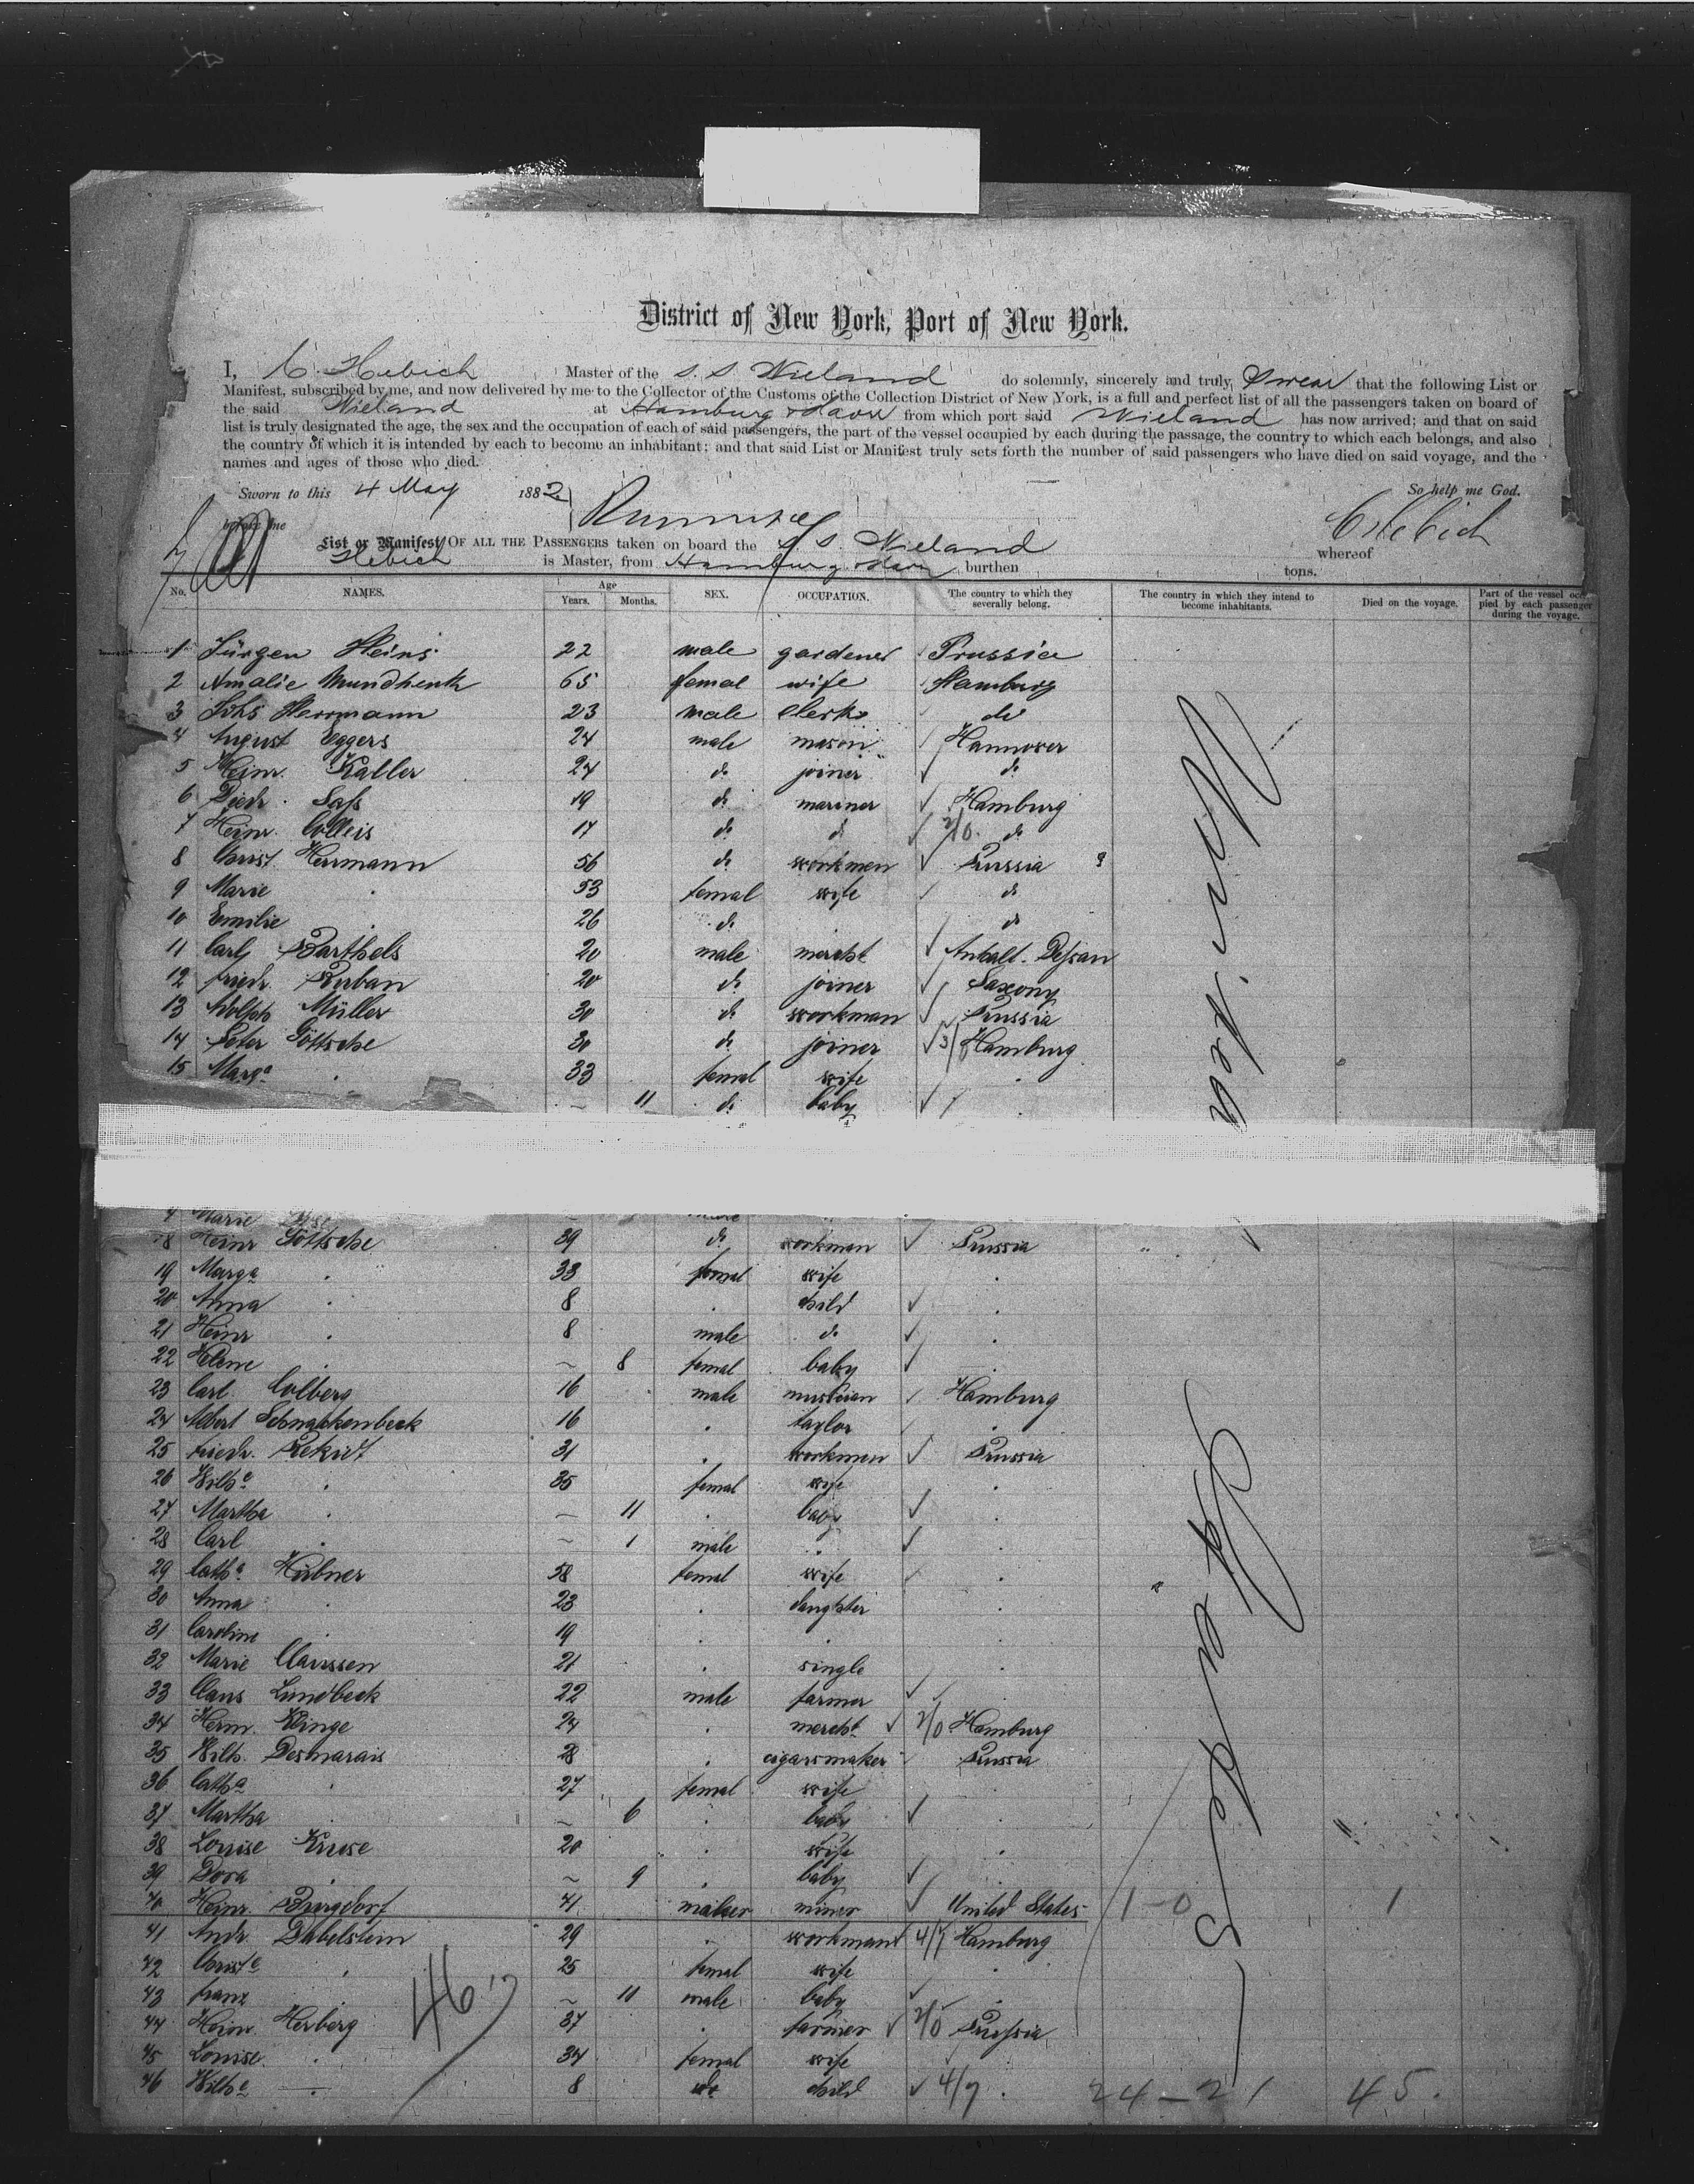 District of New York, Port of New York.
I, C. Hebich Master of the S. S. Wieland do solemnly, sincerely and truly, Swear that the following List or
Manifest, subscribed by me, and now delivered by me to the Collector of the Customs of the Collection District of New York, is a full and perfect list of all the passengers taken on board of
the said Wieland at Hamburg & Havre from which port said Wieland has now arrived; and that on said
list is truly designated the age, the sex and the occupation of each of said passengers, the part of the vessel occupied by each during the passage, the country to which each belongs, and also
the country of which it is intended by each to become an inhabitant; and that said List or Manifest truly sets forth the number of said passengers who have died on said voyage, and the
names and ages of those who died.
Sworn to this 4 May 1882 So help me God.
before me C Hebich
List or Manifest OF ALL THE PASSENGERS taken on board the S. S. Wieland whereof
Hebich is Master, from Hamburg & Havre burthen tons.
No. NAMES. Age Years. Months. SEX. OCCUPATION. The country to which they severally belong. The country in which they intend to become inhabitants. Died on the voyage. Part of the vessel occupied by each passenger during the voyage.
1 Jürgen Heins 22 male gardener Prussia
2 Amalie Mundhenk 65 femal wife Hamburg
3 Johs Herrmann 23 male clerk do
4 August Eggers 24 male mason Hannover
5 Heinr. Kaller 24 do joiner do
6 Diedr. Saß 19 do mariner Hamburg
7 Heinr. Colleis 17 do do 2/0. do
8 Christ. Herrmann 56 do workmen Prussia
9 Marie 53 femal wife do
10 Emilie 26 do do
11 Carl Barthels 20 male mercht Anhalt-Deßau
12 Friedr. Purban 20 do joiner Saxony
13 Adolph Müller 30 do workman Prussia
14 Peter Göttsche 30 do joiner 3/0 Hamburg
15 Marga 33 femal wife
— 11 do baby
Marie
18 Heinr Göttsche 39 do workman Prussia
19 Marga 33 femal wife
20 Anna 8 child
21 Heinr 8 male do
22 Helene — 8 femal baby
23 Carl Colberg 16 male musician Hamburg
24 Albert Schnackenbeck 16 taylor
25 Friedr. Rekidt 31 workmen Prussia
26 Wilhe 35 femal wife
27 Martha — 11 baby
28 Carl — 1 male
29 Catha Hübner 58 femal wife
30 Anna 23 daughter
31 Caroline 19
32 Marie Claussen 21 single
33 Claus Lundbeck 22 male farmer
34 Herm. Klinge 24 mercht 2/0 Hamburg
35 Wilh. Desmarais 28 cigarsmaker Prussia
36 Catha 27 femal wife
37 Martha — 6 baby
38 Louise Kruse 20 wife
39 Dora — 9 baby
40 Heinr. Burgdorf 41 male miner United States 1-0 1
41 Andr. Dabelstein 29 workman 4/7 Hamburg
42 Christe 25 femal wife
43 Franz — 11 male baby
44 Heinr. Herberg 37 farmer 2/0 Prussia
45 Louise 34 femal wife
46 Wilhe 8 do child 4/7. 24-21 45.
46